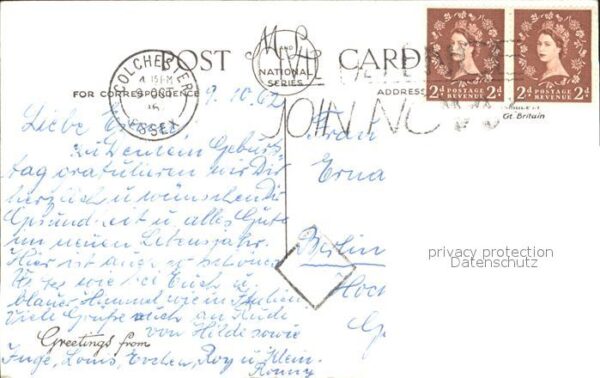 POST CARD
M and L
NATIONAL
SERIES
COLCHESTER
4.15 PM
9 OCT
ESSEX
FOR CORRESPONDENCE
ADDRESS
JOIN NOW
2d POSTAGE REVENUE 2d
2d POSTAGE REVENUE 2d
Gt. Britain
9.10.62
Liebe
Zu Deinem Geburts
tag gratulieren wir Dir
herzlich u wünschen Dir
Gesundheit u alles Gute
im neuen Lebensjahr.
Hier ist auch so schönes
wie bei Euch u.
blauer Himmel wie in Italien
Viele Grüße auch an Rudi
von Hildi sowie
Greetings from
Inge, Louis, Roy u Klein
Ronny
Frau
Erna
Berlin
Hoch
privacy protection
Datenschutz